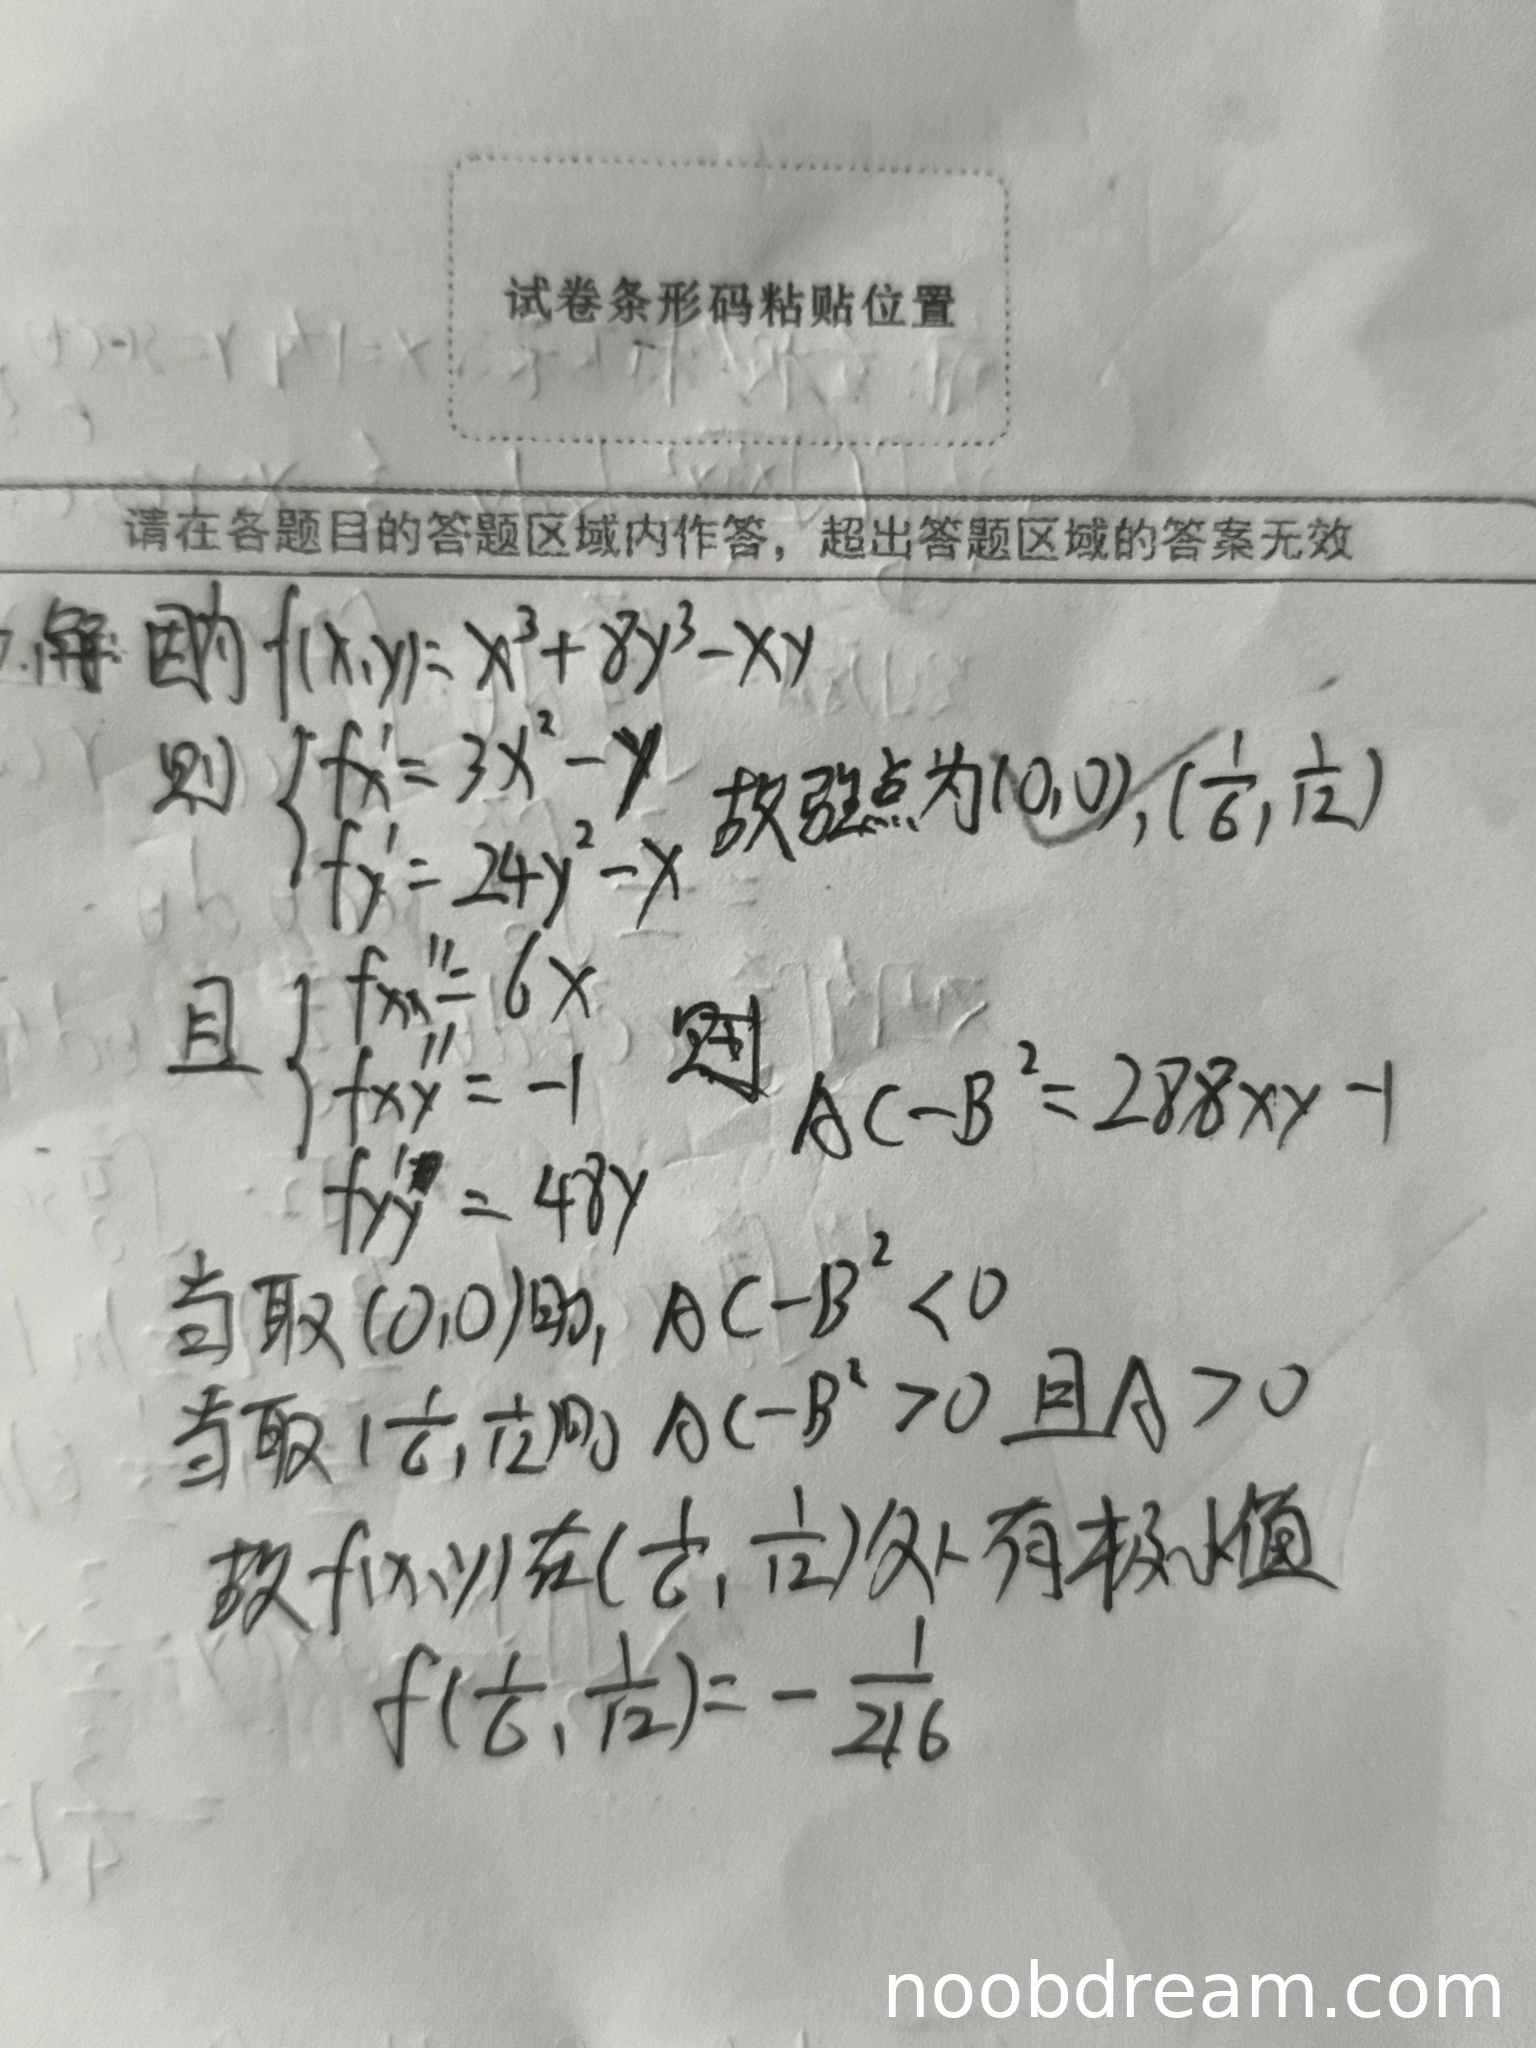 试卷条形码粘贴位置
请在各题目的答题区域内作答，超出答题区域的答案无效
7.解: 因为 f(x,y)= x³+8y³-xy
则 { fx'= 3x²-y
fy'= 24y²-x
故驻点为(0,0), (1/6, 1/12)
且 { fxx''= 6x
fxy''= -1
fyy''= 48y
则 AC-B²= 288xy-1
当取(0,0)时, AC-B²<0
当取(1/6, 1/12)时 AC-B²>0 且A>0
故f(x,y)在(1/6, 1/12)处有极小值
f(1/6, 1/12)= - 1/216
noobdream.com